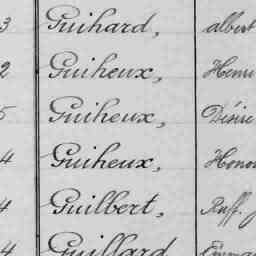 3 Guihard, albert
2 Guiheux, Henri
5 Guiheux, Désiré
4 Guiheux, Honor
4 Guilbert, Ruff.
4 Guillard